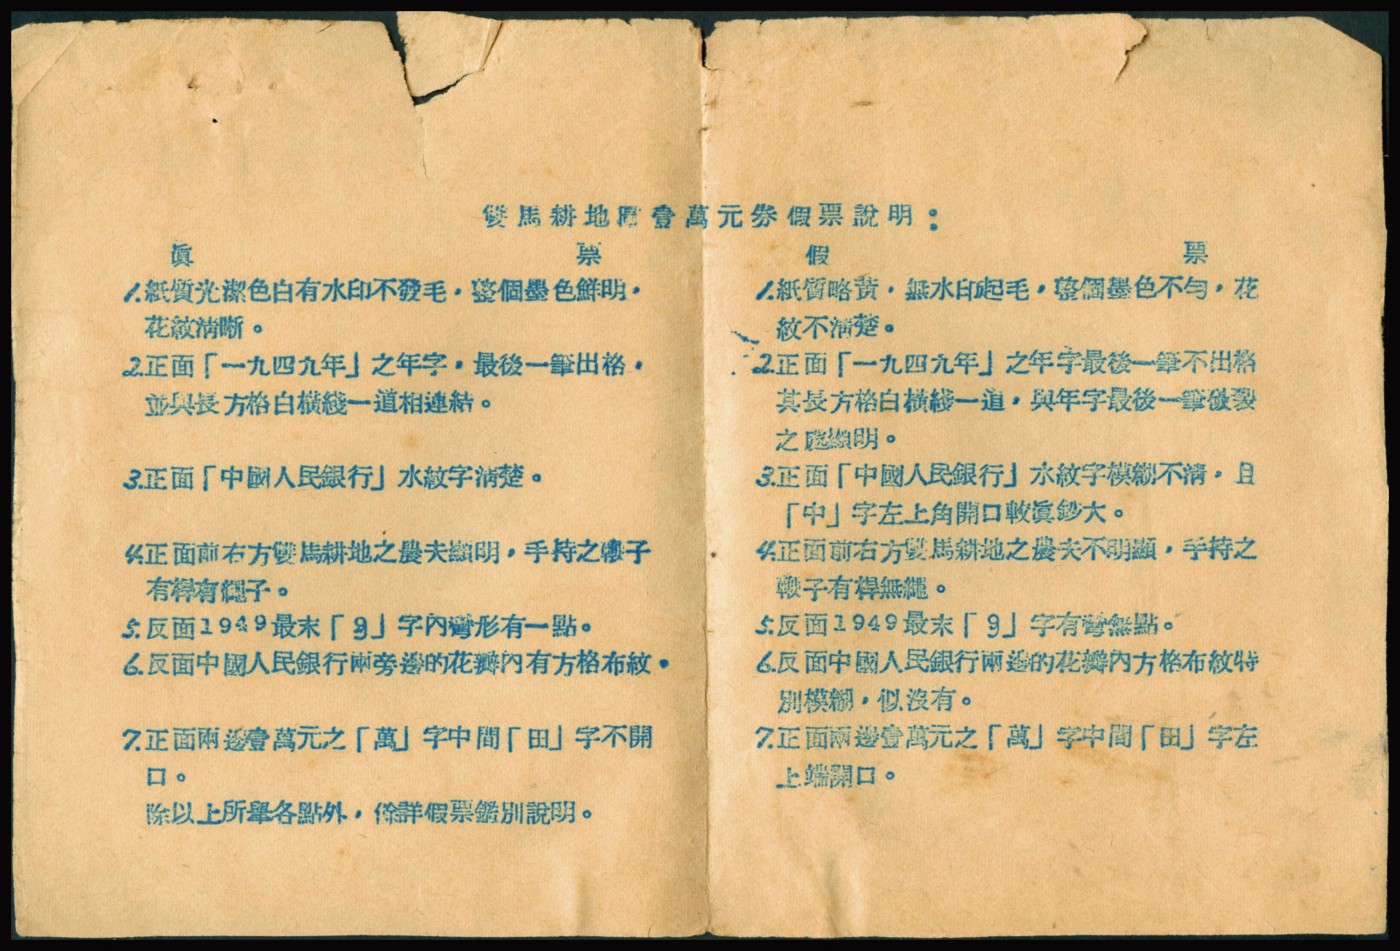 雙馬耕地圖壹萬元券假票說明：
眞 票
1.紙質光潔色白有水印不發毛，整個墨色鮮明，
花紋淸晰。
2.正面「一九四九年」之年字，最後一筆出格，
並與長方格白橫綫一道相連結。
3.正面「中國人民銀行」水紋字淸楚。
4.正面前右方雙馬耕地之農夫顯明，手持之鞭子
有桿有繩子。
5.反面1949最末「9」字內彎形有一點。
6.反面中國人民銀行兩旁邊的花瓣內有方格布紋。
7.正面兩邊壹萬元之「萬」字中間「田」字不開
口。
除以上所舉各點外，餘詳假票鑑別說明。
假 票
1.紙質略黃，無水印起毛，整個墨色不勻，花
紋不淸楚。
2.正面「一九四九年」之年字最後一筆不出格
其長方格白橫綫一道，與年字最後一筆破裂
之處顯明。
3.正面「中國人民銀行」水紋字模糊不淸，且
「中」字左上角開口較眞鈔大。
4.正面前右方雙馬耕地之農夫不明顯，手持之
鞭子有桿無繩。
5.反面1949最末「9」字有彎無點。
6.反面中國人民銀行兩邊的花瓣內方格布紋特
別模糊，似沒有。
7.正面兩邊壹萬元之「萬」字中間「田」字左
上端開口。